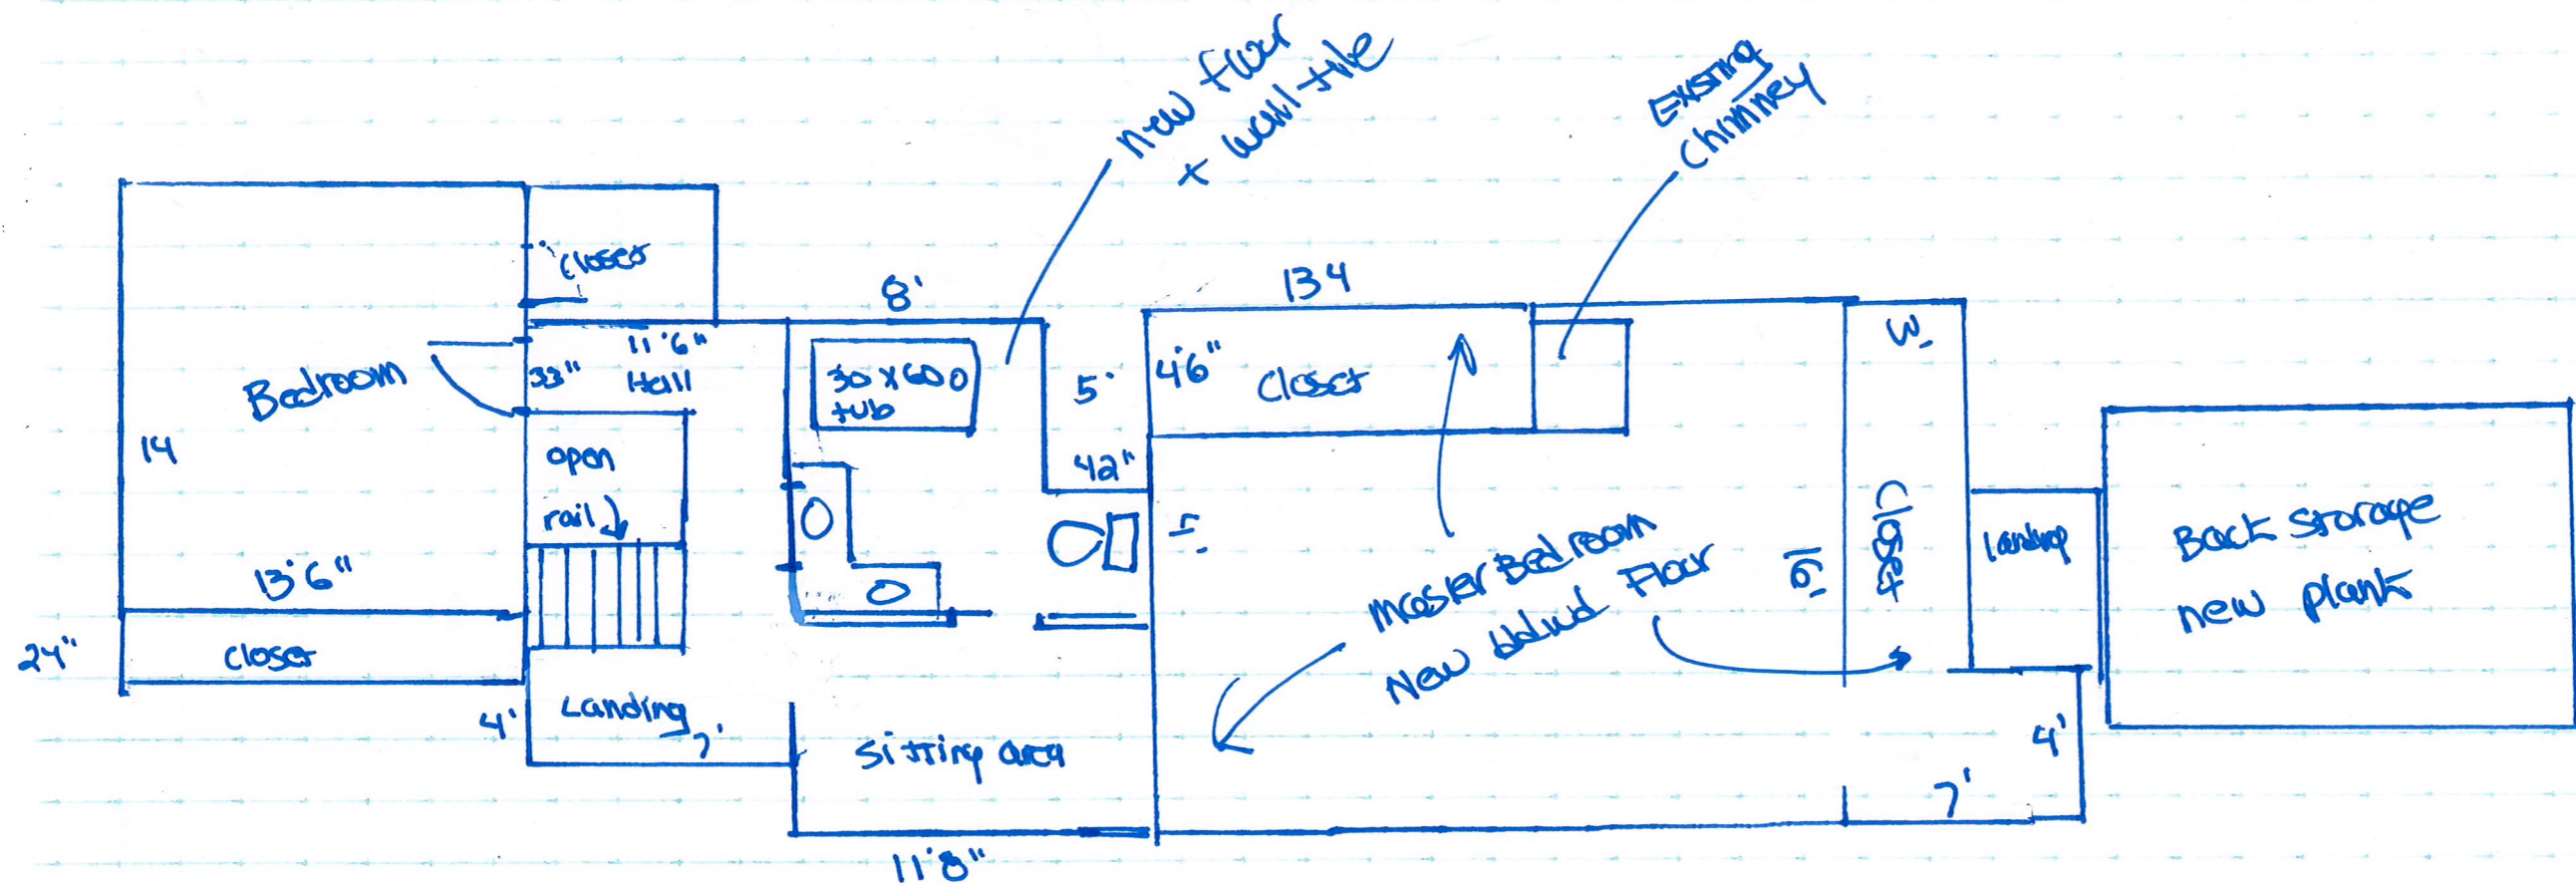 new floor
+ wall tile
Existing
chimney
closet
8'
134
11'6"
33"
Hall
30 x 60
tub
5'
4'6"
Closet
3'
Bedroom
14
open
rail
42"
Closet
Back storage
new plank
13'6"
Master Bedroom
New Floor
24"
closet
4'
Landing
7'
sitting area
4'
7'
11'8"